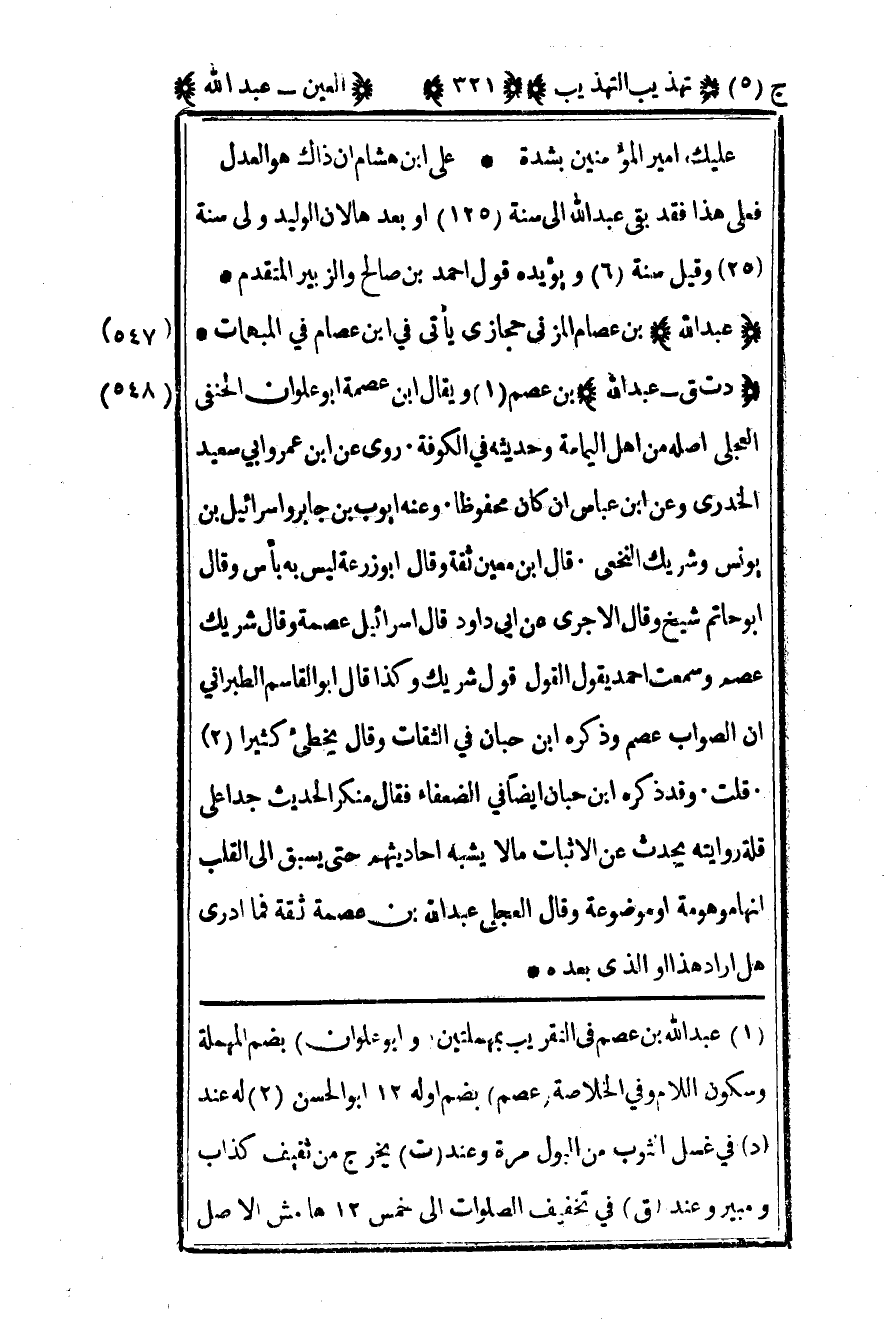 ج (٥) ﴿ تهذيب التهذيب ﴾ ﴿ ٣٢١ ﴾ ﴿ العين ــ عبد الله ﴾
عليك، امير المؤمنين بشدة • على ابن هشام ان ذاك هو العدل
فعلى هذا فقد بقى عبدالله الى سنة (١٢٥) او بعد هالان الوليد ولى سنة
(٢٥) وقيل سنة (٦) و يؤيده قول احمد بن صالح والزبير المتقدم •
﴿ عبدالله ﴾ بن عصام المزنى حجازى يأتى في ابن عصام في المبهمات • (٥٤٧)
﴿ دت ق ــ عبدالله ﴾ بن عصم (١) ويقال ابن عصمة ابو علوان الحنفى (٥٤٨)
العجلى اصله من اهل اليمامة وحديثه في الكوفة · روى عن ابن عمر وابي سعيد
الخدرى وعن ابن عباس ان كان محفوظا · وعنه ايوب بن جابر واسرائيل بن
يونس وشريك النخعى · قال ابن معين ثقة وقال ابوزرعة ليس به بأس وقال
ابوحاتم شيخ وقال الآجرى عن ابي داود قال اسرائيل عصمة وقال شريك
عصم وسمعت احمد يقول القول قول شريك وكذا قال ابوالقاسم الطبراني
ان الصواب عصم وذكره ابن حبان في الثقات وقال يخطئ كثيرا (٢)
· قلت · وقدذكره ابن حبان ايضاً في الضعفاء فقال منكر الحديث جدا على
قلة روايته يحدث عن الاثبات مالا يشبه احاديثهم حتى يسبق الى القلب
انها موهومة او موضوعة وقال العجلي عبدالله بن عصمة ثقة فما ادرى
هل اراد هذا او الذى بعده •
(١) عبدالله بن عصم فى التقريب بمهملتين (و ابو علوان) بضم المهملة
وسكون اللام وفي الخلاصة (عصم) بضم اوله ١٢ ابو الحسن (٢) له عند
(د) في غسل الثوب من البول مرة وعند (ت) يخرج من ثقيف كذاب
و مبير وعند (ق) في تخفيف الصلوات الى خمس ١٢ هامش الاصل